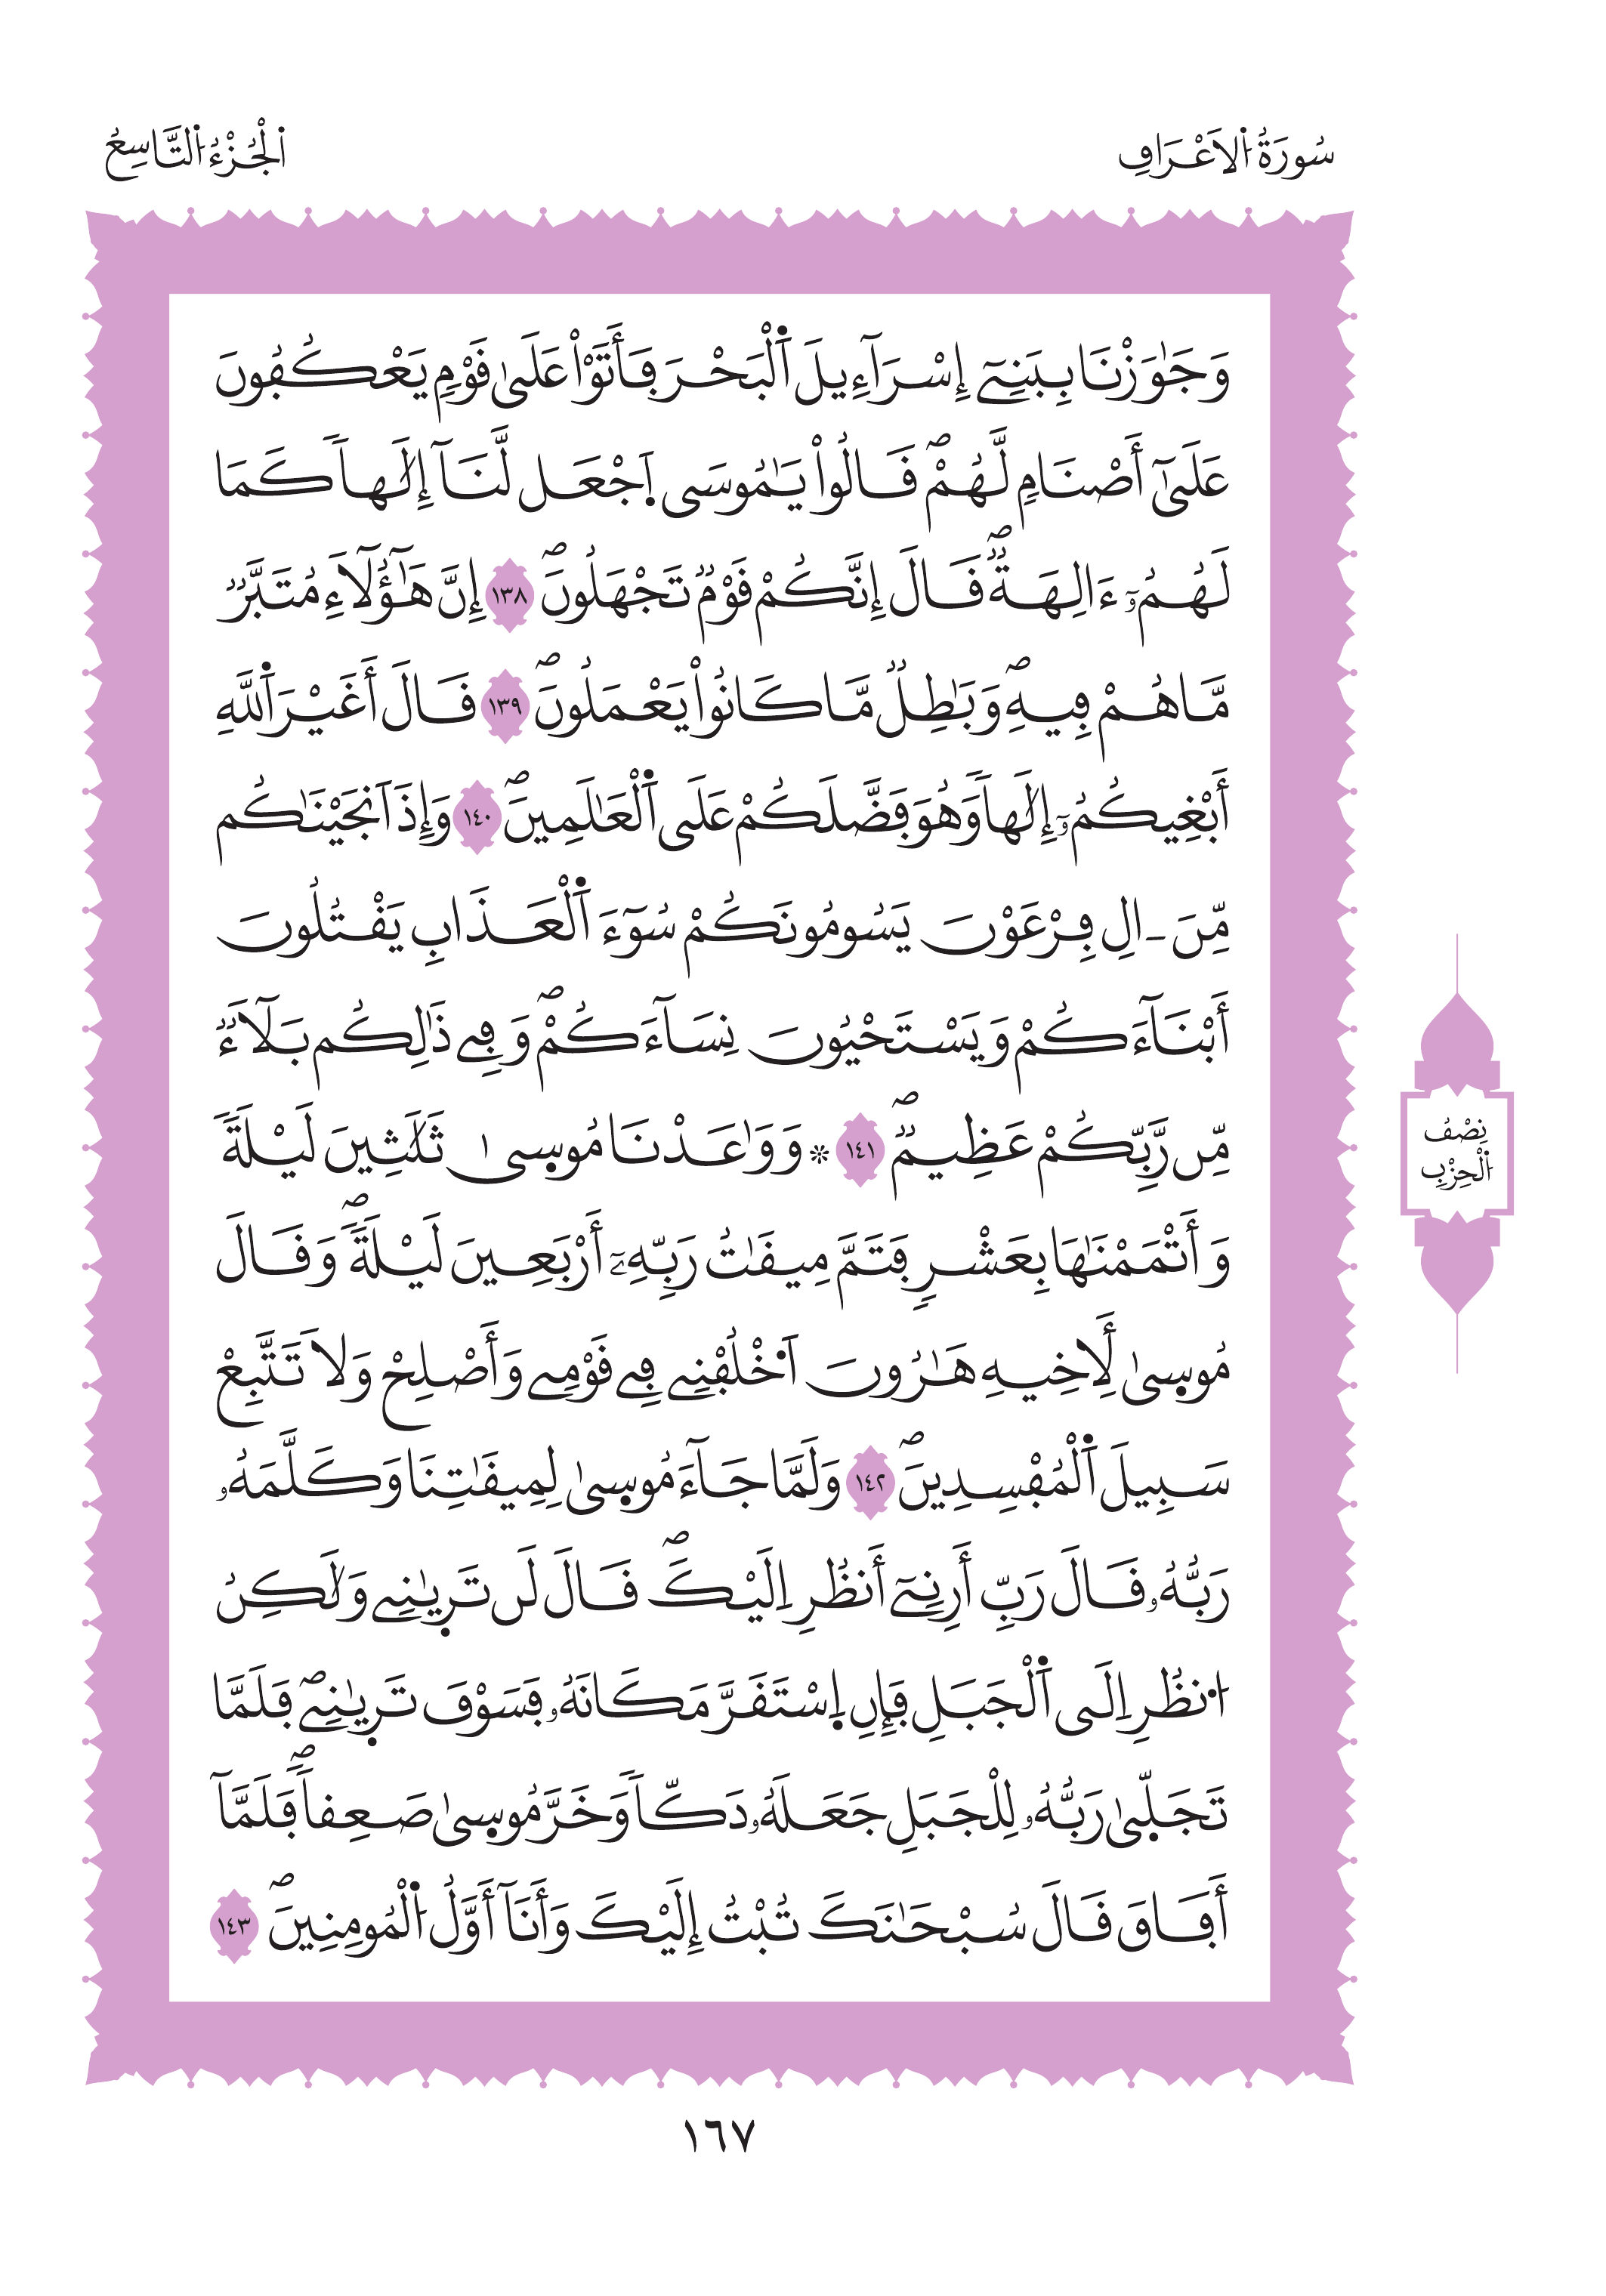 سُورَةُ اُ۬لَاعْرَافِ
اَ۬لْجُزْءُ اُ۬لتَّاسِعُ
وَجَٰوَزْنَا بِبَنِےٓ إِسْرَآءِيلَ اَ۬لْبَحْرَ فَأَتَوْاْ عَلَىٰ قَوْمٖ يَعْكُفُونَ
عَلَىٰٓ أَصْنَامٖ لَّهُمْۖ قَالُواْ يَٰمُوسَى اَ۪جْعَل لَّنَآ إِلَٰهاٗ كَمَا
لَهُمُۥٓ ءَالِهَةٞۖ قَالَ إِنَّكُمْ قَوْمٞ تَجْهَلُونَۖ ١٣٨ إِنَّ هَٰٓؤُلَآءِ مُتَبَّرٞ
مَّا هُمْ فِيهِۖ وَبَٰطِلٞ مَّا كَانُواْ يَعْمَلُونَۖ ١٣٩ قَالَ أَغَيْرَ اَ۬للَّهِ
أَبْغِيكُمُۥٓ إِلَٰهاٗ وَهُوَ فَضَّلَكُمْ عَلَى اَ۬لْعَٰلَمِينَۖ ١٤٠ وَإِذَ اَنجَيْنَٰكُم
مِّنَ ـ اَلِ فِرْعَوْنَ يَسُومُونَكُمْ سُوٓءَ اَ۬لْعَذَابِ يَقْتُلُونَ
أَبْنَآءَكُمْ وَيَسْتَحْيُونَ نِسَآءَكُمْۖ وَفِے ذَٰلِكُم بَلَآءٞ
مِّن رَّبِّكُمْ عَظِيمٞۖ ١٤١ ۞ وَوَٰعَدْنَا مُوس۪يٰ ثَلَٰثِينَ لَيْلَةٗ
وَأَتْمَمْنَٰهَا بِعَشْرٖ فَتَمَّ مِيقَٰتُ رَبِّهِۦٓ أَرْبَعِينَ لَيْلَةٗۖ وَقَالَ
مُوس۪يٰ لِأَخِيهِ هَٰرُونَ اَ۟خْلُفْنِے فِے قَوْمِے وَأَصْلِحْ وَلَا تَتَّبِعْ
سَبِيلَ اَ۬لْمُفْسِدِينَۖ ١٤٢ وَلَمَّا جَآءَ مُوس۪يٰ لِمِيقَٰتِنَا وَكَلَّمَهُۥ
رَبُّهُۥ قَالَ رَبِّ أَرِنِےٓ أَنظُرِ اِلَيْكَۖ قَالَ لَن تَر۪يٰنِے وَلَٰكِنُ
اُ۟نظُرِ اِلَى اَ۬لْجَبَلِ فَإِنِ اِ۪سْتَقَرَّ مَكَانَهُۥ فَسَوْفَ تَر۪يٰنِےۖ فَلَمَّا
تَجَلّ۪يٰ رَبُّهُۥ لِلْجَبَلِ جَعَلَهُۥ دَكّاٗ وَخَرَّ مُوس۪يٰ صَعِقاٗۖ فَلَمَّآ
أَفَاقَ قَالَ سُبْحَٰنَكَ تُبْتُ إِلَيْكَ وَأَنَآ أَوَّلُ اُ۬لْمُومِنِينَۖ ١٤٣
نِصْفُ
اُ۬لْحِزْبِ
١٦٧